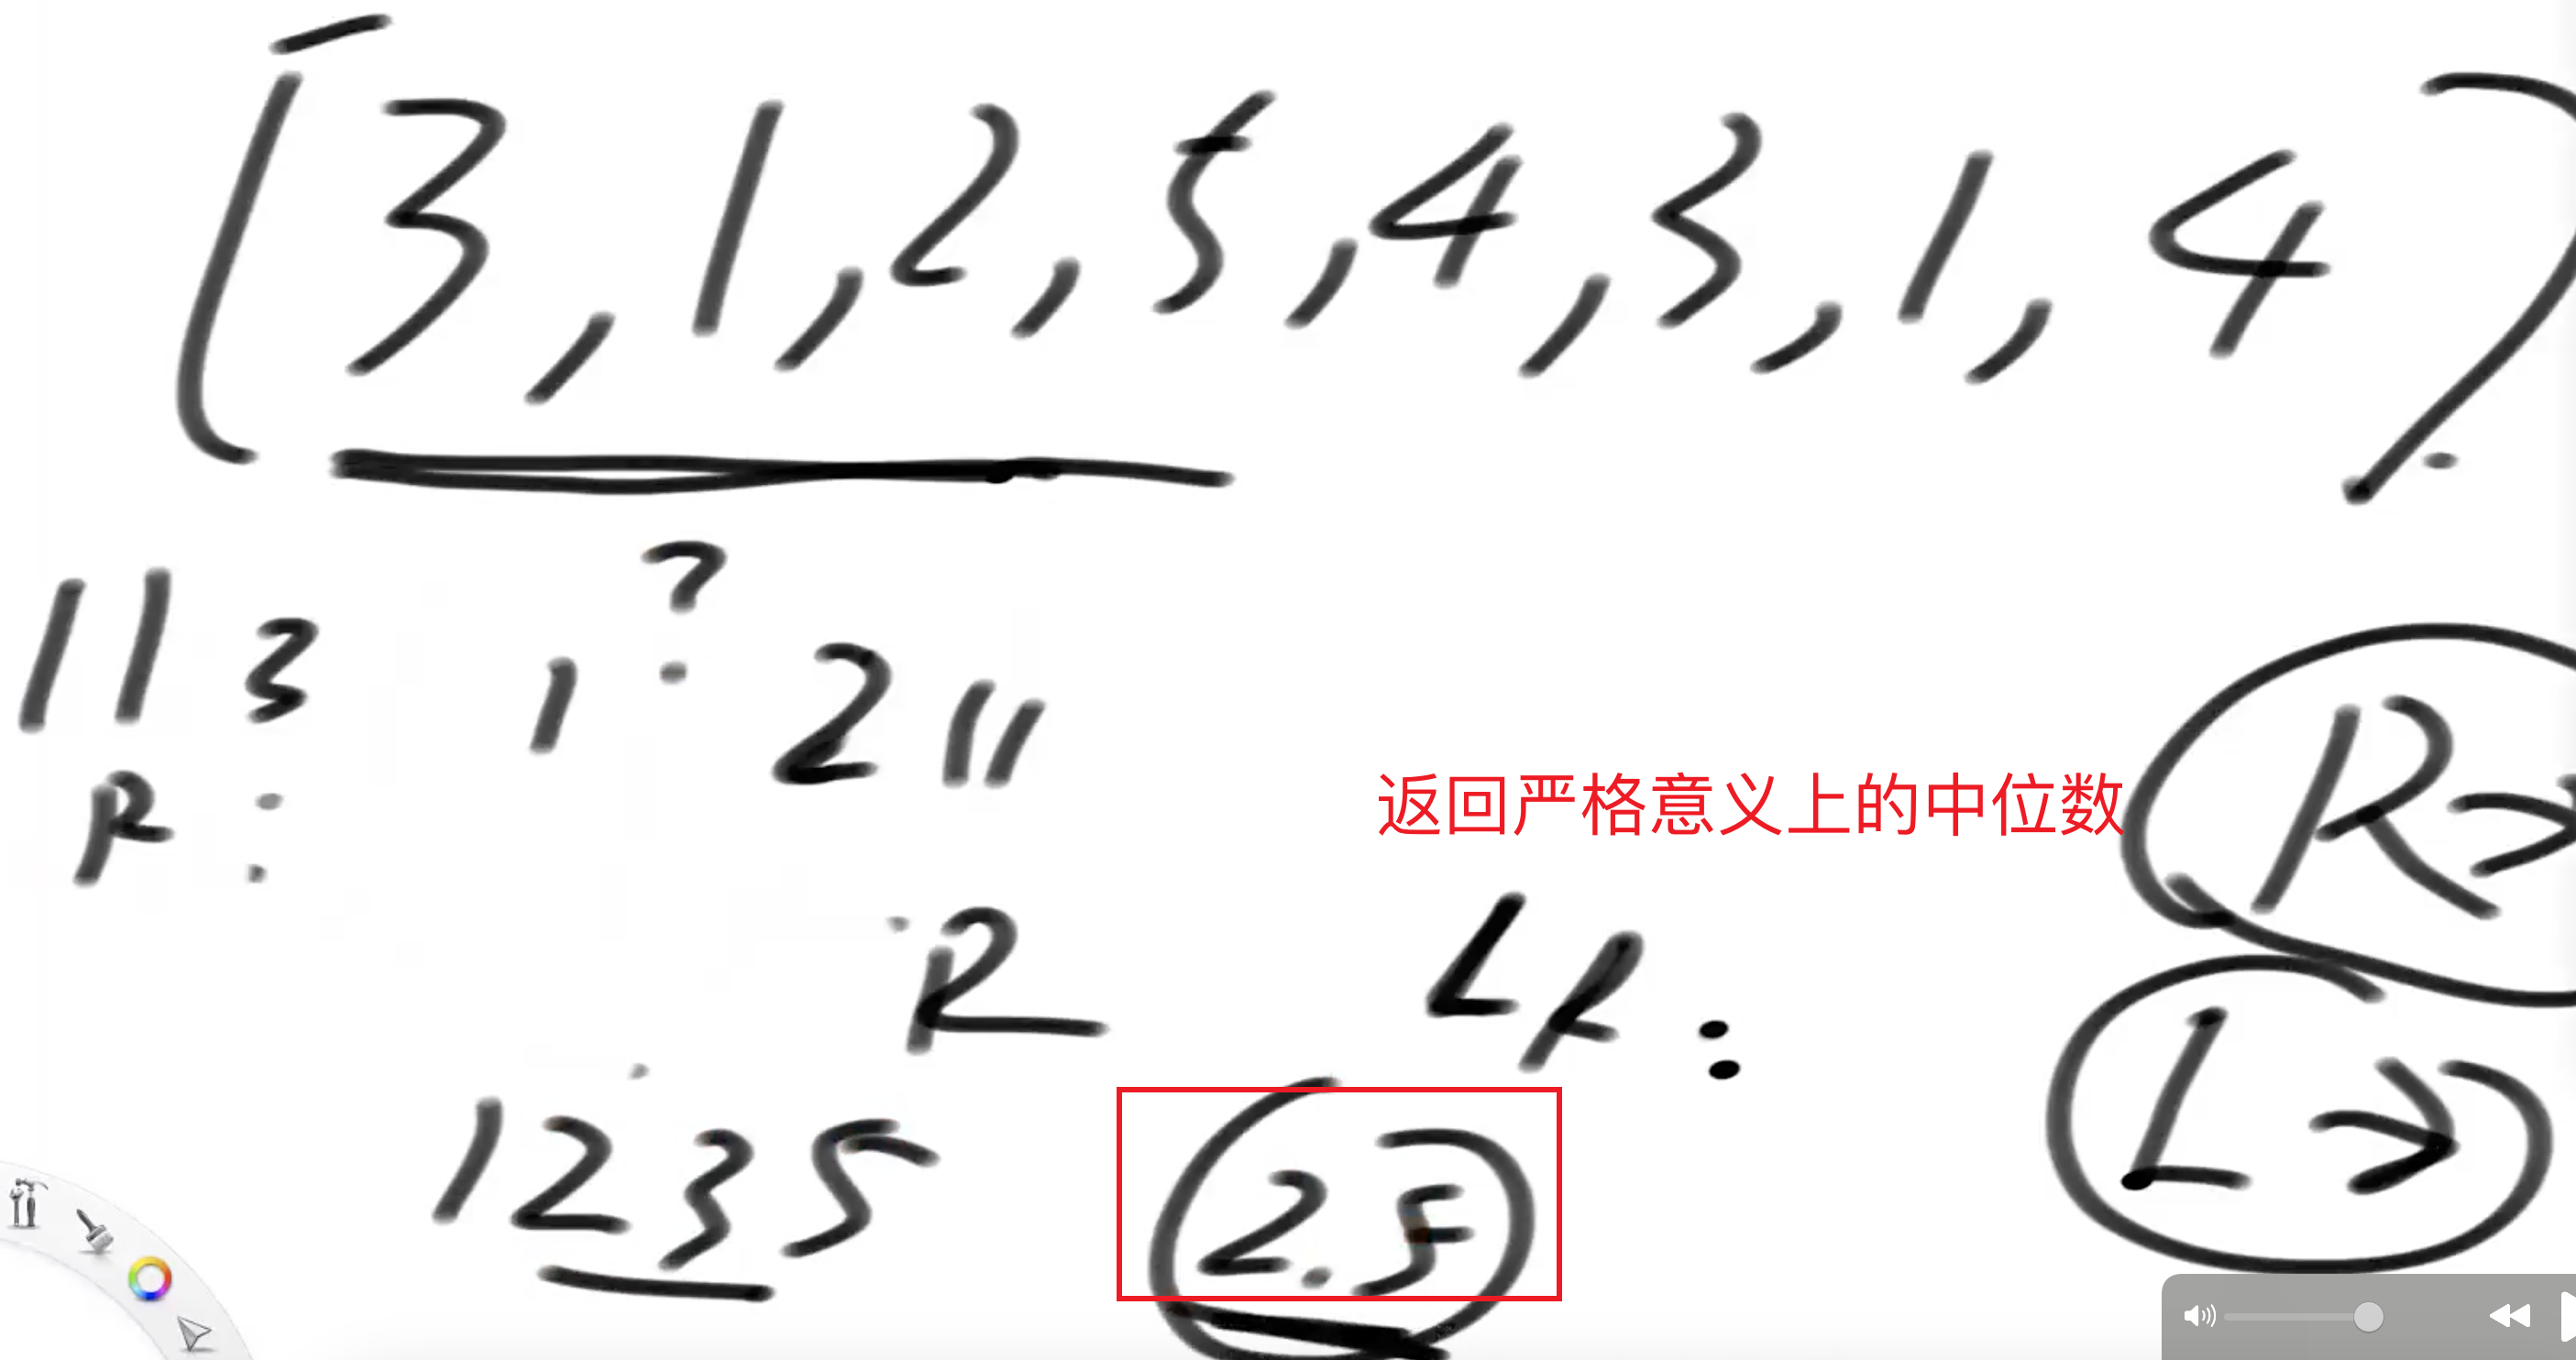 [3,1,2,5,4,3,1,4]
113 1 ? 2 11
R:
返回严格意义上的中位数
R→
R LR:
L→
1235 2.5